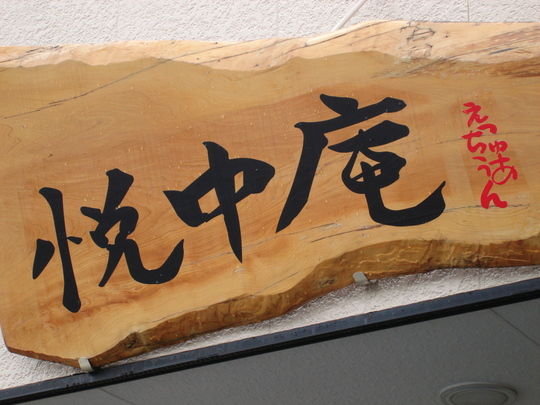 悦中庵
えっちゅうあん